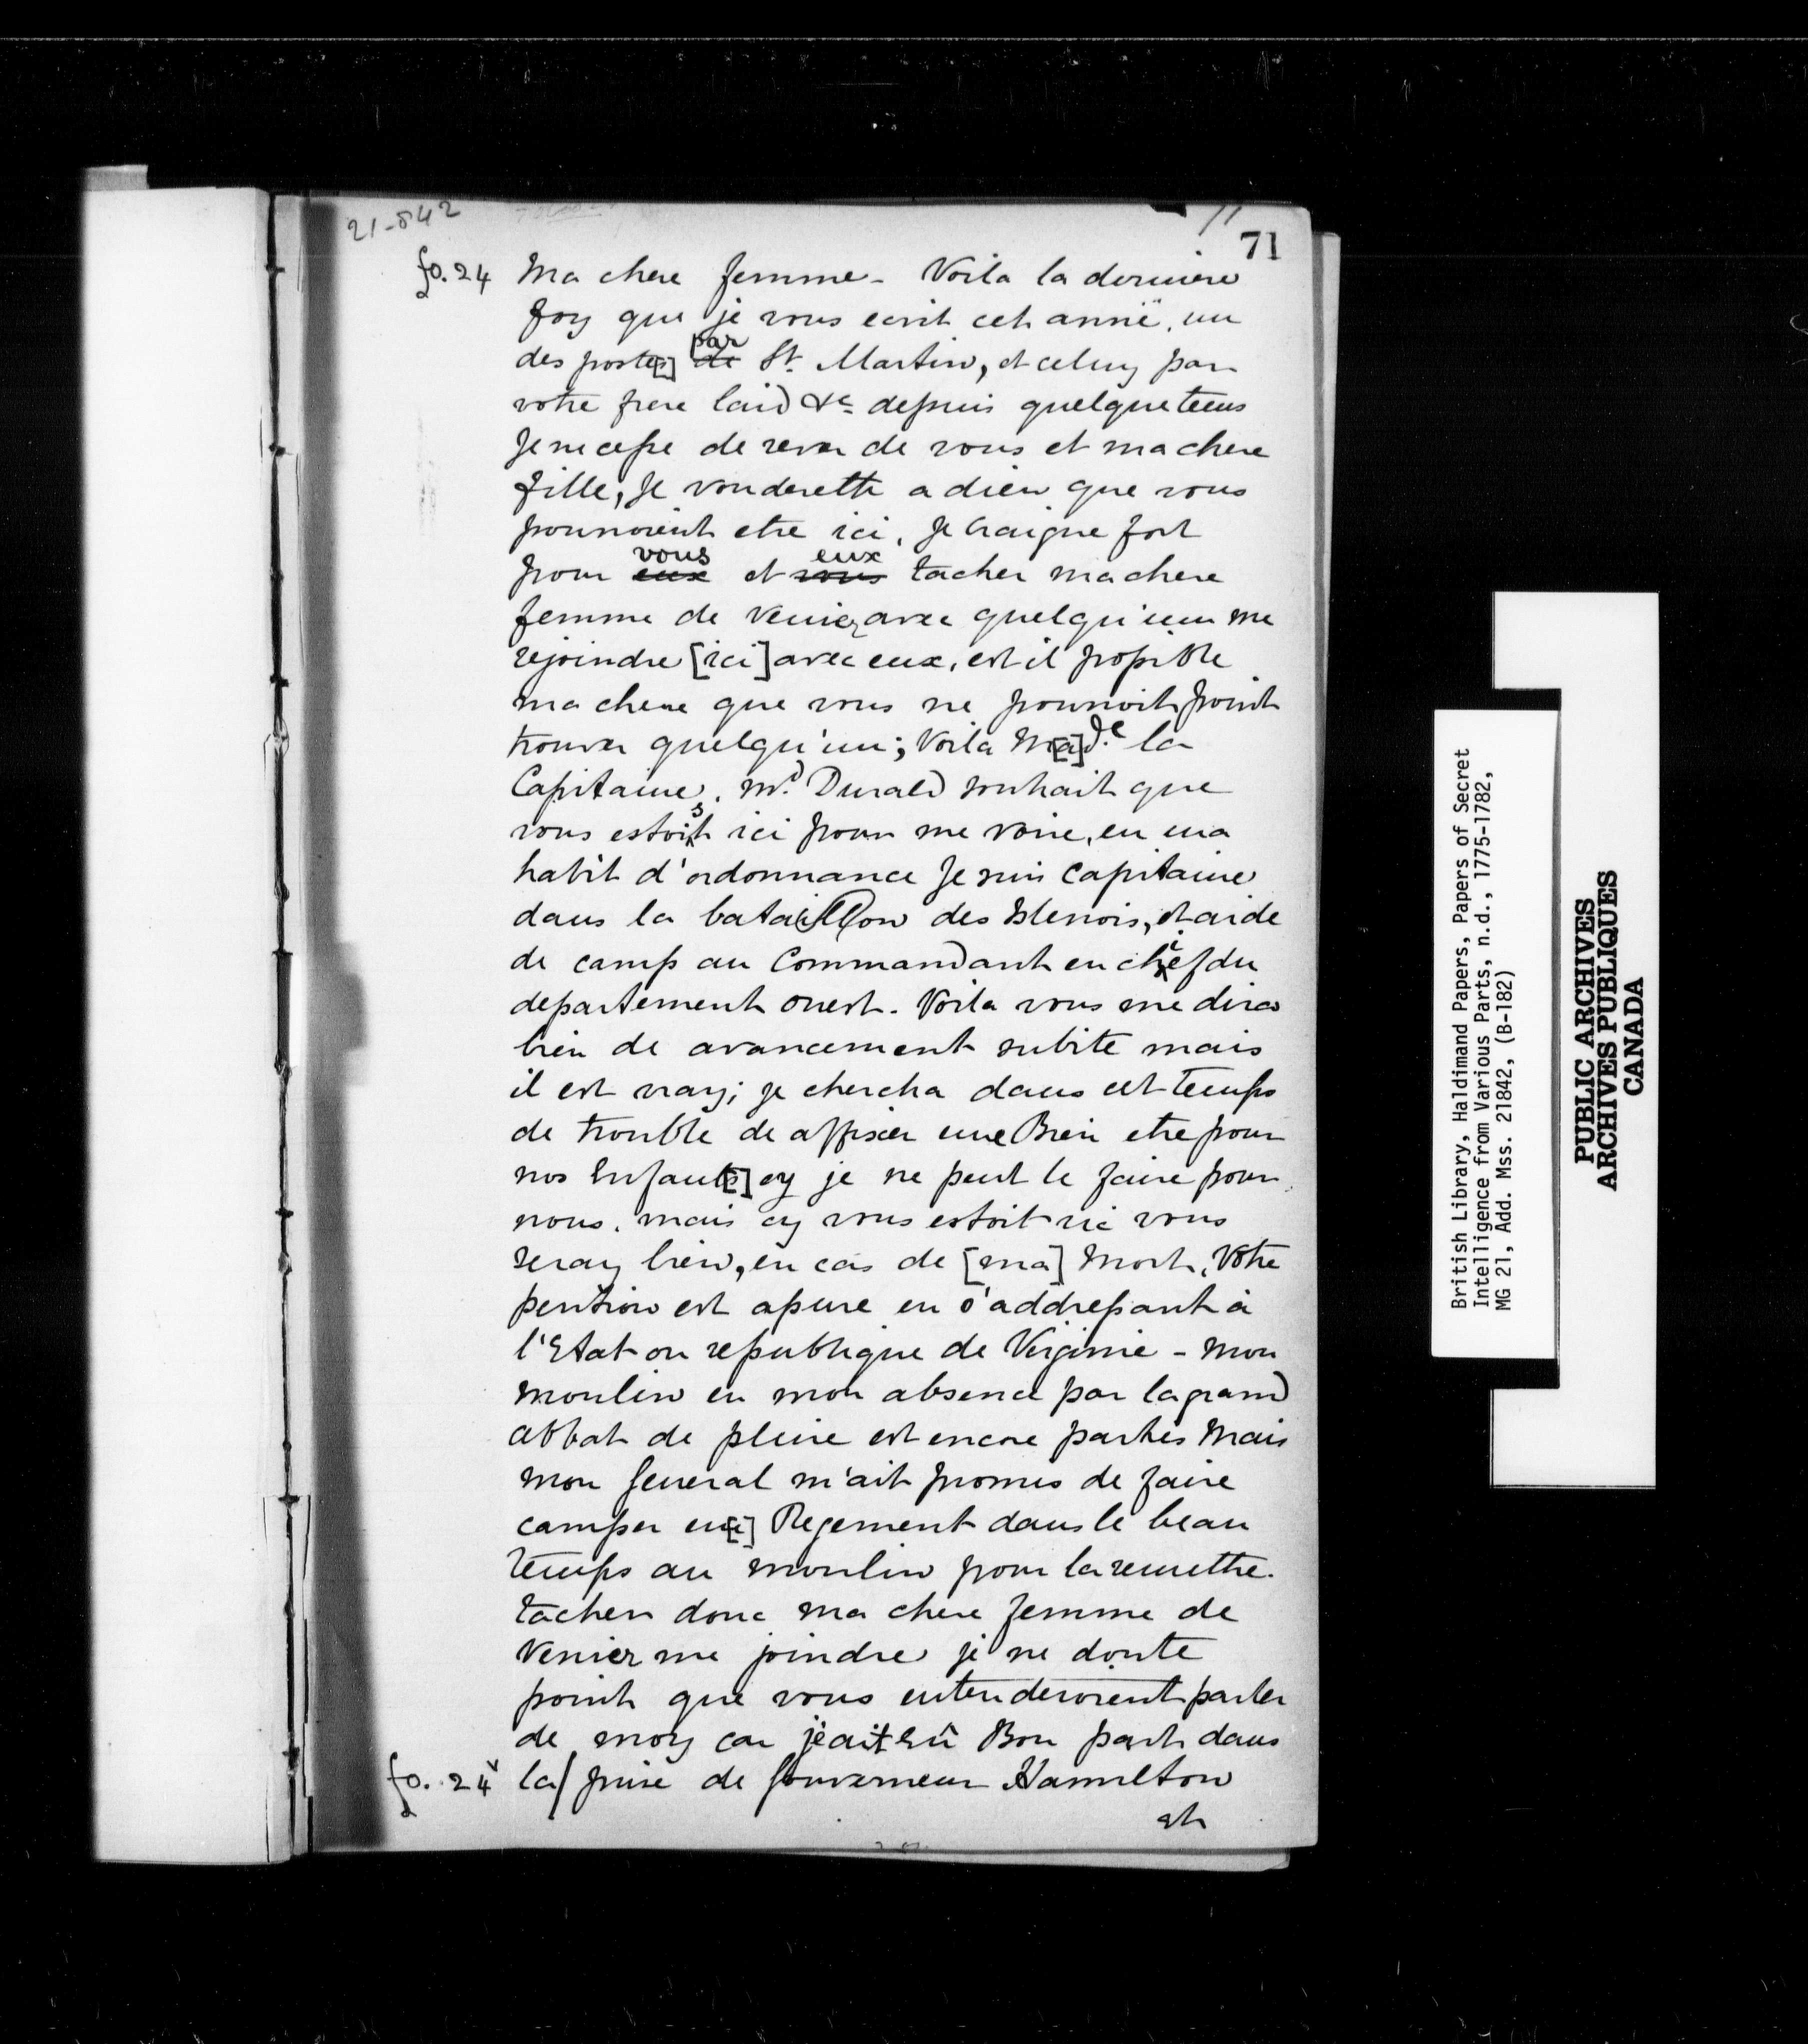 21-842
71
71
fo. 24 Ma chere femme - Voila la derniere
foy que je vous ecrit cet anneë, un
des postes[] par de St. Martin, et celuy par
votre frere laid &c depuis quelque tems
Je ne cesse de rever de vous et ma chere
fille, Je vouderette a dieu que vous
pourroient etre ici, Je craigne fort
pour vous eux et eux vous tacher ma chere
femme de venier avec quelqu'un me
rejoindre [ici] avec eux, est il possible
ma chere que vous ne pourroit point
trouver quelqu'un; Voila M[a]de la
Capitaine, Md Durald souhait que
vous estoist ici pour me voire, en ma
habit d'ordonnance Je suis Capitaine
dans la bataillon des Islenois, et aide
de camp au Commandant en chief du
departement ouest. Voila vous me dires
bien de avancement subite mais
il est vray; je chercha dans cet temps
de trouble de affixer une Bien etre pour
nos Enfants[] cy je ne peut le faire pour
nous. mais cy vous estoit ici vous
seray bien, en cas de [ma] Mort, Votre
pention est assure en s'addressant à
l'Etat ou republique de Virginie - Mon
moulin en mon absence par la grand
abbat de pluie est encore parties Mais
mon General m'ait promis de faire
camper un[e] Regement dans le beau
temps au moulin pour la remettre.
tacher donc ma chere femme de
Venier me joindre je ne doute
point que vous entenderoient parler
de moy car j'eait eû Bon part dans
fo. 24v la/ prise de Gouverneur Hamilton
et
British Library, Haldimand Papers, Papers of Secret
Intelligence from Various Parts, n.d., 1775-1782,
MG 21, Add. Mss. 21842, (B-182)
PUBLIC ARCHIVES
ARCHIVES PUBLIQUES
CANADA